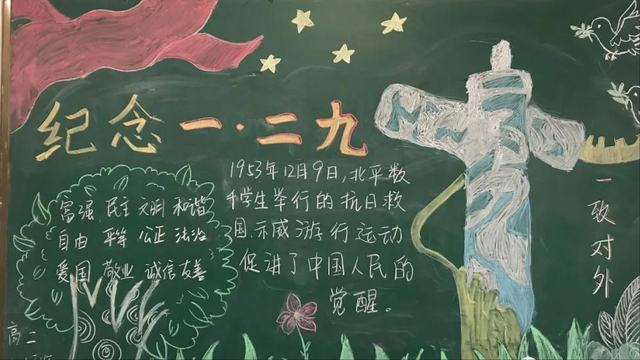 纪念一·二九
1953年12月9日,北平数
千学生举行的抗日救
国示威游行运动
促进了中国人民的
觉醒。
富强 民主 文明 和谐
自由 平等 公正 法治
爱国 敬业 诚信 友善
一致对外
高二